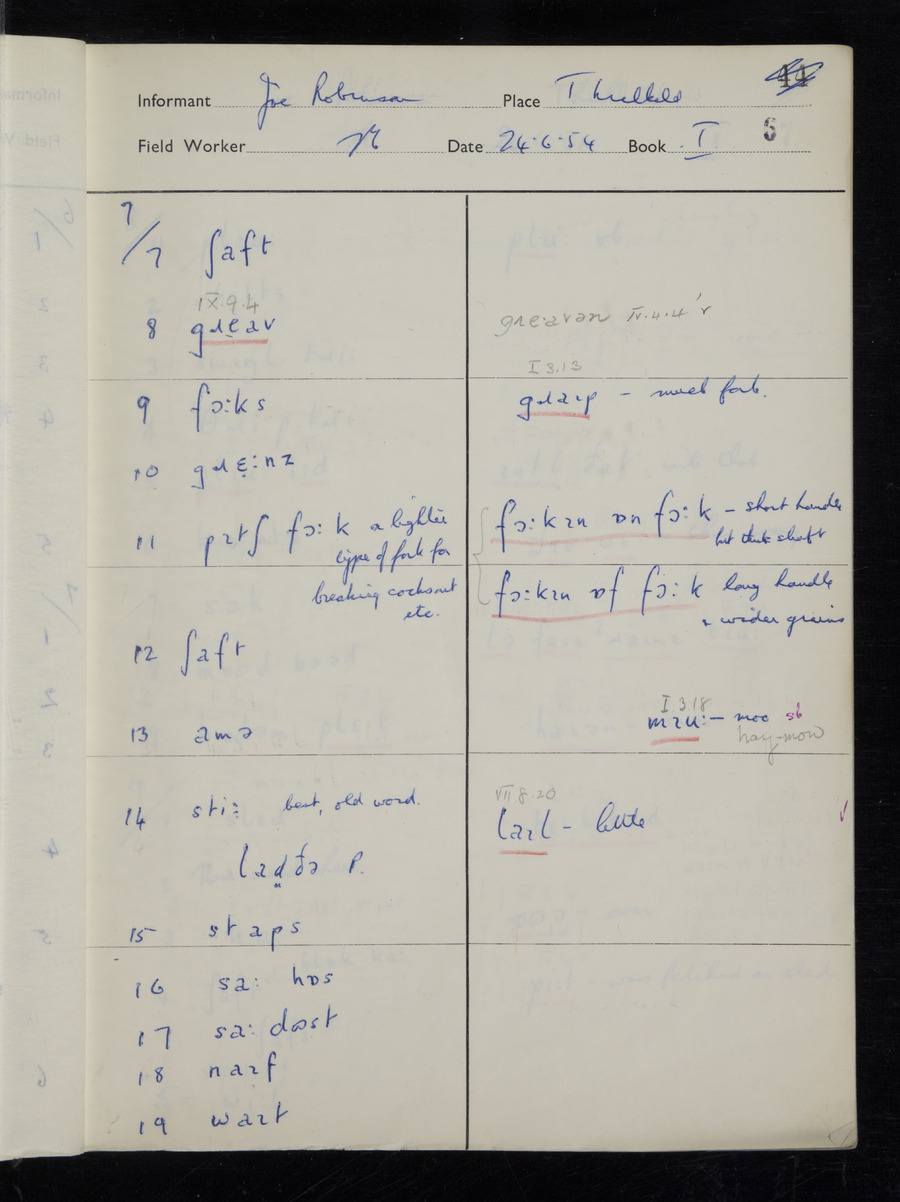 Informant Joe Robinson Place Threlkeld
Field Worker Date 24.6.54 Book I 6
7/7 ʃaft
IX.9.4
8 grɛav
IV.4.4
I 3.13
9 fɔ:ks
graɪp – muck fork.
10 grɛ:nz
11 pɪtʃ fɔ:k a lighter
type of fork for
breaking cocks out
etc.
fɔ:kɪn ɒn fɔ:k – short handle
but thick shaft
fɔ:kɪn ɒf fɔ:k long handle
& wider grains
12 ʃaft
I.3.18
13 amə
mɪu: – moo sb
hay-mow
14 sti: best, old word.
VII.8.20
laɪl – little
ladðə P.
15 staps
16 sa: hɒs
17 sa: dʊst
18 naɪf
19 waɪt